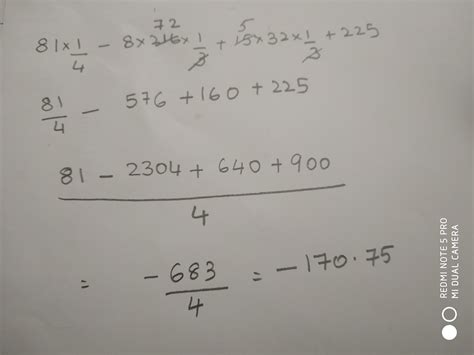 81 × 1/4 − 8 × 216 72 × 1/3 + 15 5 × 32 × 1/3 + 225
81/4 − 576 + 160 + 225
81 − 2304 + 640 + 900
4
= −683/4 = −170.75
REDMI NOTE 5 PRO
MI DUAL CAMERA